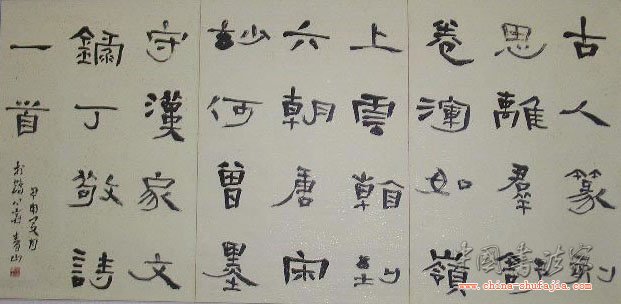 古人篆刻
思離羣舒
卷渾如嶺
上雲看到
六朝唐宋
妙何曾墨
守漢家文
丁敬詩
一首
甲申 月
青山
中国书法家
www.china-shufajia.com